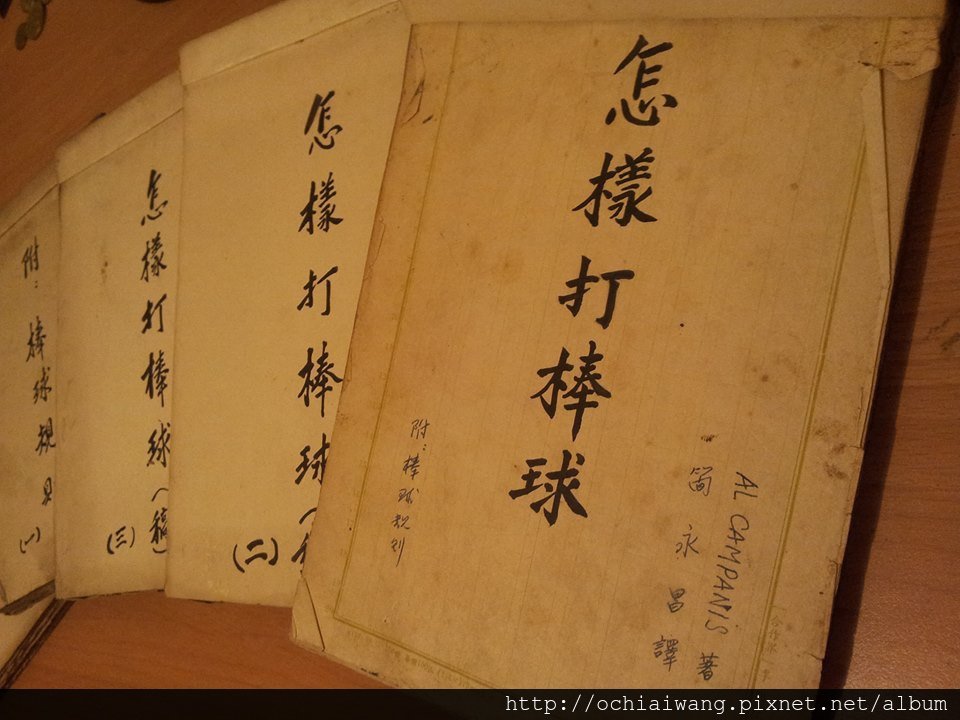 AL CAMPANIS 著
简永昌 譯
怎樣打棒球
附：棒球規則
怎樣打棒球（
（二）
怎樣打棒球（稿）
（三）
附：棒球規
（一）
http://ochiaiwang.pixnet.net/album